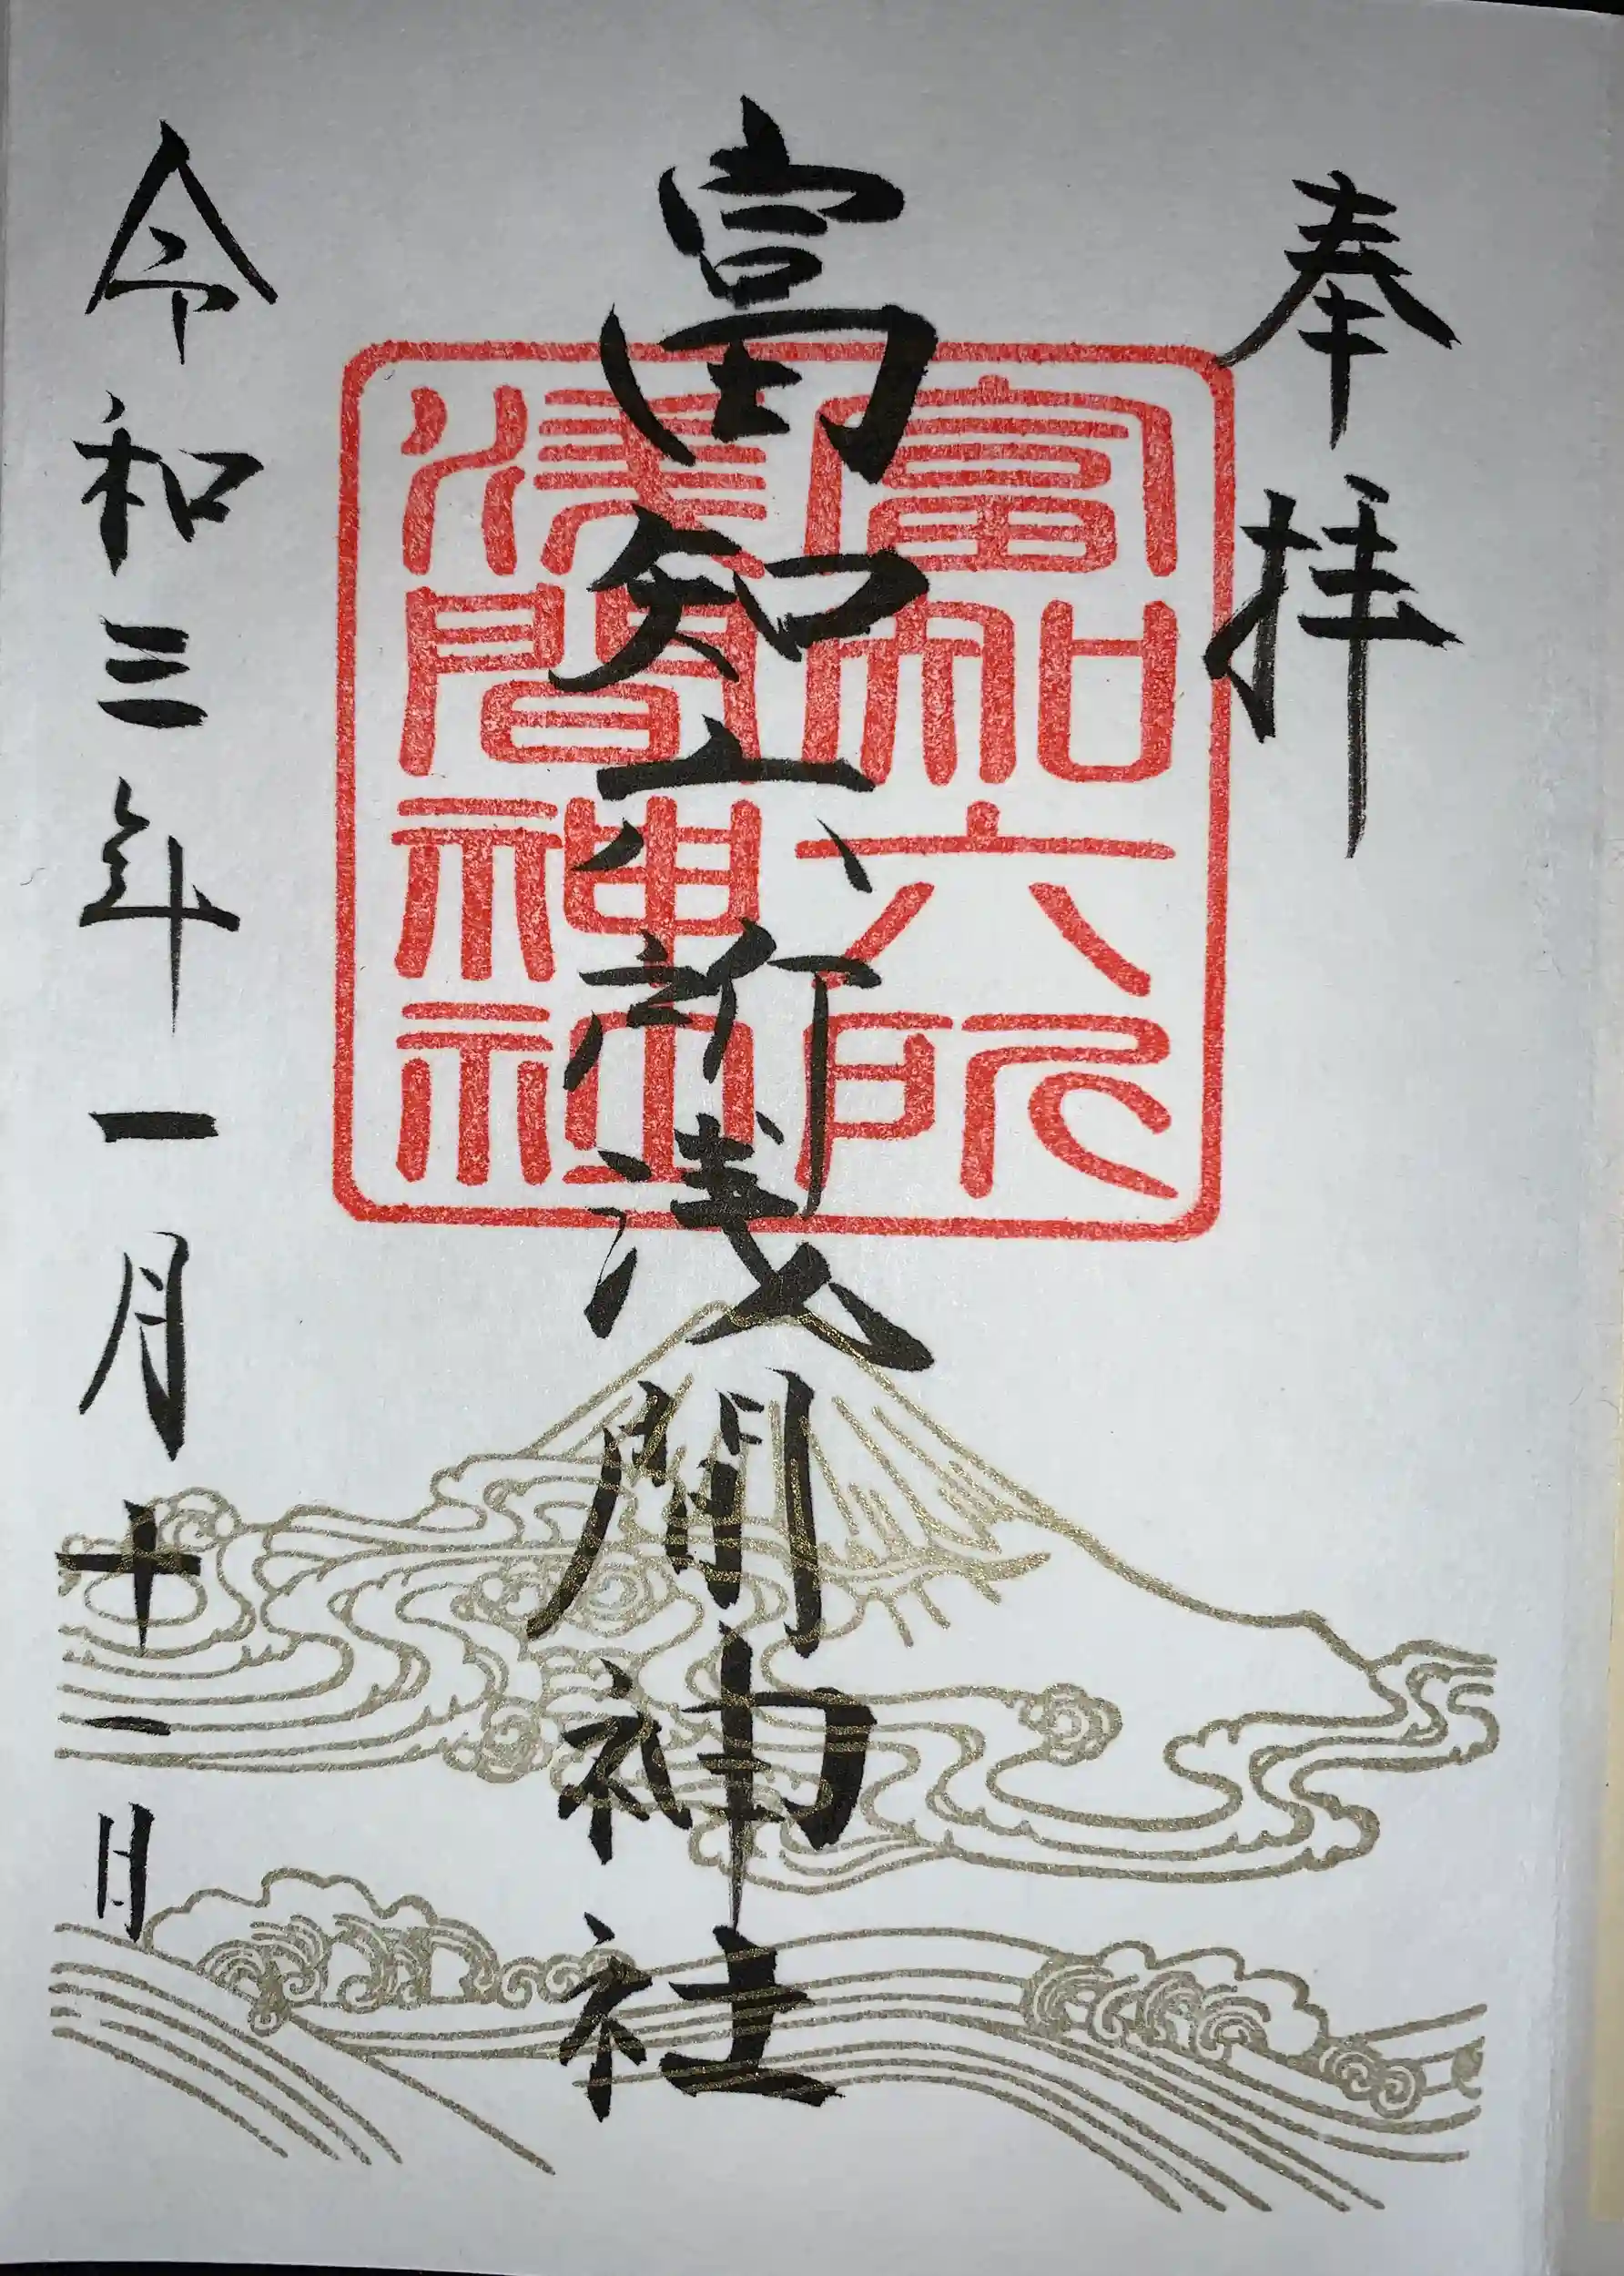 奉拝
富知六所浅間神社
令和三年一月十一日
富知六所
淺間神社